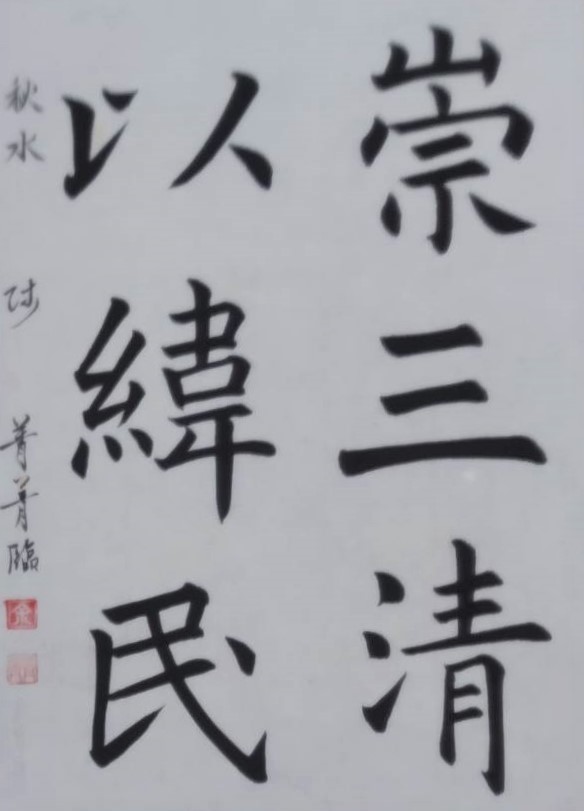 崇三清
以緯民
秋水
菁菁臨